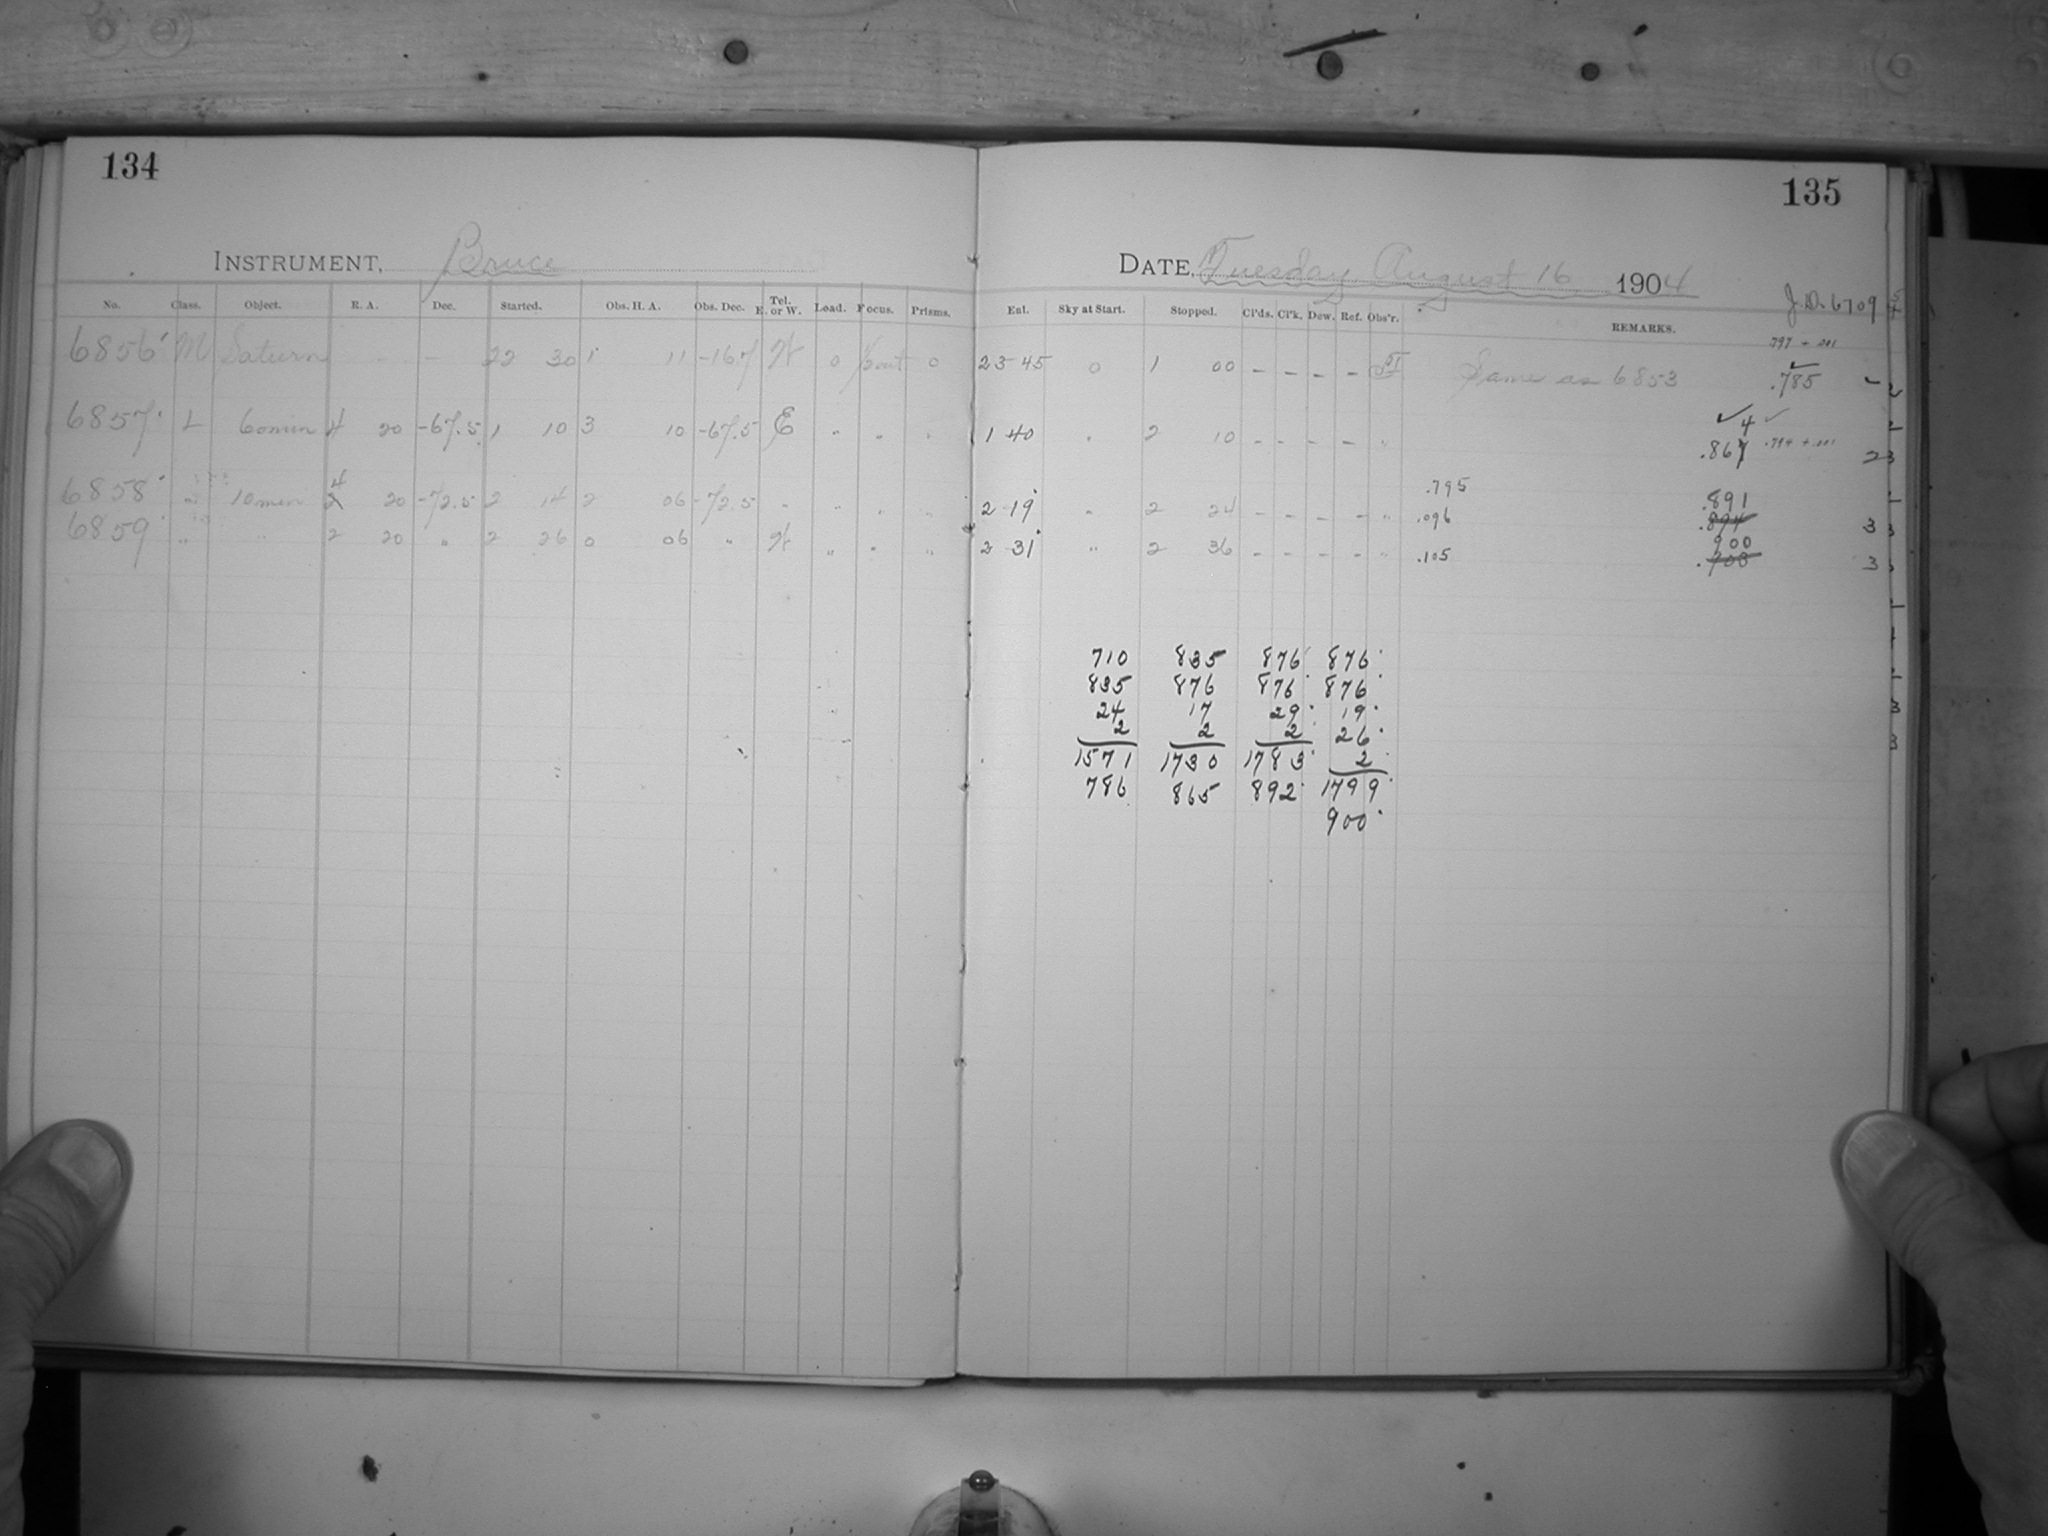 134
135
INSTRUMENT, Bruce
DATE, Tuesday August 16 1904
J.D. 6709
No. Class. Object. R. A. Dec. Started. Obs. H. A. Obs. Dec. Tel. E. or W. Load. Focus. Prisms. Ent. Sky at Start. Stopped. Cl'ds. Cl'k. Dew. Ref. Obs'r. REMARKS.
.797 + .001
6856 M Saturn - - 22 30 1 11 -16.7 W 0 out 0 23 45 0 1 00 - - - - Same as 6853 .785
6857 L 60 min 4 20 -67.5 1 10 3 10 -67.5 E " " " 1 40 " 2 10 - - - - " .867 4 .794 + .001 2
6858 " 10 min 4 20 -72.5 2 14 2 06 -72.5 " " " " 2 19 " 2 24 - - - - " .795 .096 .891 .894 3
6859 " " 2 20 " 2 26 0 06 " W " " " 2 31 " 2 36 - - - - " .105 900 .900 3
710 835 876 876
835 876 876 876
24 17 29 19
2 2 2 26
1571 1730 1783 2
786 865 892 1799
900